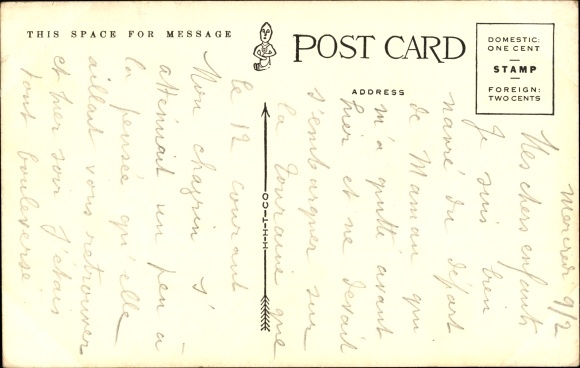 THIS SPACE FOR MESSAGE
POST CARD
ADDRESS
DOMESTIC:
ONE CENT
STAMP
FOREIGN:
TWO CENTS
H-H-T-CO
Mercredi 9/2
Mes chers enfants
Je suis bien
navré du départ
de Maman qui
m'a quitté avant
hier et ne devait
s'embarquer sur
la Touraine que
le 12 courant
Mon chagrin s'
atténuait un peu à
la pensée qu'elle
allait vous retrouver
et hier soir j'étais
tout bouleversé